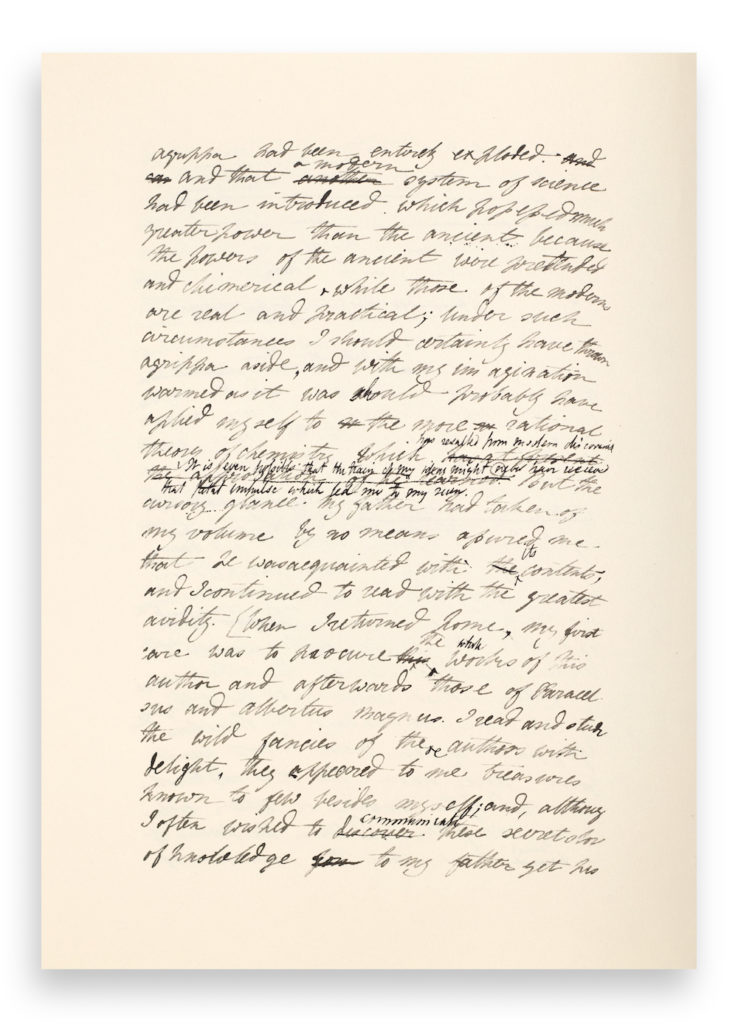 agrippa had been entirely exploded. and
and that another a modern system of science
had been introduced which possessed much
greater power than the ancient because
the powers of the ancient were pretended
and chimerical, while those of the moderns
are real and practical; under such
circumstances I should certainly have thrown
agrippa aside, and with my imagination
warmed as it was should probably have
aplied myself to the more rational
theory of chemistry which
has resulted from modern discoveries
It is even possible that the train of my ideas might never have recieved
of the learned. But the
that fatal impulse which led me to my ruin.
cursory glance my father had taken of
my volume by no means assured me
that he was acquainted with the its contents;
and I continued to read with the greatest
avidity. When I returned home, my first
care was to procure this the whole works of this
author and afterwards those of Paracel
sus and albertus magnus. I read and study
the wild fancies of these authors with
delight, they appeared to me treasures
known to few besides myself; and, althoug
I often wished to discover communicate these secret stor
of knowledge to my father yet his